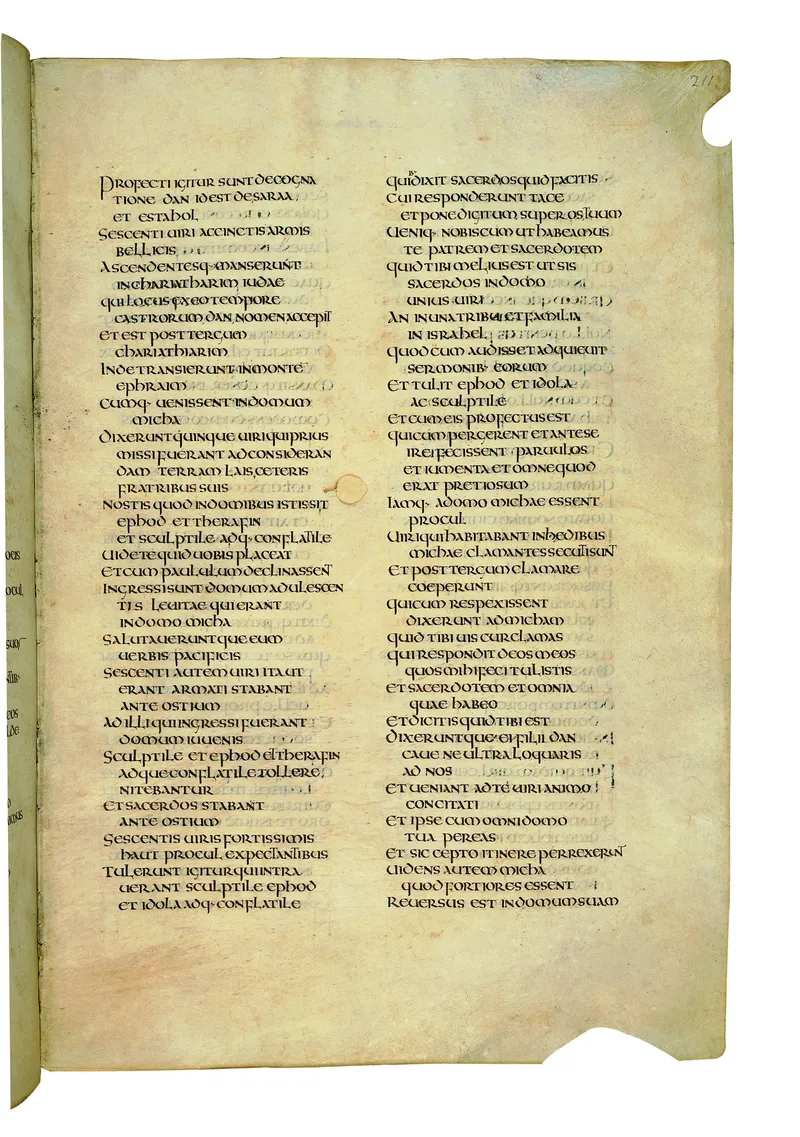 211
PROFECTI IGITUR SUNT DE COGNA
TIONE DAN ID EST DE SARAA
ET ESTAHOL
SESCENTI UIRI ACCINCTI S ARMIS
BELLICIS
ASCENDENTESQ· MANSERUNT
IN CHARIATHARIM IUDAE
QUI LOCUS EX EO TEMPORE
CASTRORUM DAN NOMEN ACCEPIT
ET EST POST TERGUM
CHARIATHIARIM
INDE TRANSIERUNT IN MONTE
EPHRAIM
CUMQ· UENISSENT IN DOMUM
MICHA
DIXERUNT QUINQUE UIRI QUI PRIUS
MISSI FUERANT AD CONSIDERAN
DAM TERRAM LAIS CETERIS
FRATRIBUS SUIS
NOSTIS QUOD IN DOMIBUS ISTIS SIT
EPHOD ET THERAFIN
ET SCULPTILE ADQ· CONFLATILE
UIDETE QUID UOBIS PLACEAT
ET CUM PAULULUM DECLINASSENT
INGRESSI SUNT DOMUM ADULESCEN
TIS LEUITAE QUI ERANT
IN DOMO MICHA
SALUTAUERUNTQUE EUM
UERBIS PACIFICIS
SESCENTI AUTEM UIRI ITA UT
ERANT ARMATI STABANT
ANTE OSTIUM
AD ILLI QUI INGRESSI FUERANT
DOMUM IUUENIS
SCULPTILE ET EPHOD ET THERAFIN
ADQUE CONFLATILE TOLLERE
NITEBANTUR
ET SACERDOS STABANT
ANTE OSTIUM
SESCENTIS UIRIS FORTISSIMIS
HAUT PROCUL EXPECTANTIBUS
TULERUNT IGITUR QUI INTRA
UERANT SCULPTILE EPHOD
ET IDOLA ADQ· CONFLATILE
QUI DIXIT SACERDOS QUID FACITIS
CUI RESPONDERUNT TACE
ET PONE DIGITUM SUPER OS TUUM
UENIQ· NOBISCUM UT HABEAMUS
TE PATREM ET SACERDOTEM
QUID TIBI MELIUS EST UT SIS
SACERDOS IN DOMO
UNIUS UIRI
AN IN UNA TRIBU ET FAMILIA
IN ISRAHEL
QUOD CUM AUDISSET ADQUIEUIT
SERMONIB· EORUM
ET TULIT EPHOD ET IDOLA
AC SCULPTILE
ET CUM EIS PROFECTUS EST
QUI CUM PERGERENT ET ANTE SE
IRE FECISSENT PARUULOS
ET IUMENTA ET OMNE QUOD
ERAT PRETIOSUM
IAMQ· A DOMO MICHAE ESSENT
PROCUL
UIRI QUI HABITABANT IN HEDIBUS
MICHAE CLAMANTES SECUTI SUNT
ET POST TERGUM CLAMARE
COEPERUNT
QUI CUM RESPEXISSENT
DIXERUNT AD MICHAM
QUID TIBI UIS CUR CLAMAS
QUI RESPONDIT DEOS MEOS
QUOS MIHI FECI TULISTIS
ET SACERDOTEM ET OMNIA
QUAE HABEO
ET DICITIS QUID TIBI EST
DIXERUNTQUE EI FILII DAN
CAUE NE ULTRA LOQUARIS
AD NOS
ET UENIANT AD TE UIRI ANIMO
CONCITATI
ET IPSE CUM OMNI DOMO
TUA PEREAS
ET SIC CEPTO ITINERE PERREXERUNT
UIDENS AUTEM MICHA
QUOD FORTIORES ESSENT
REUERSUS EST IN DOMUM SUAM